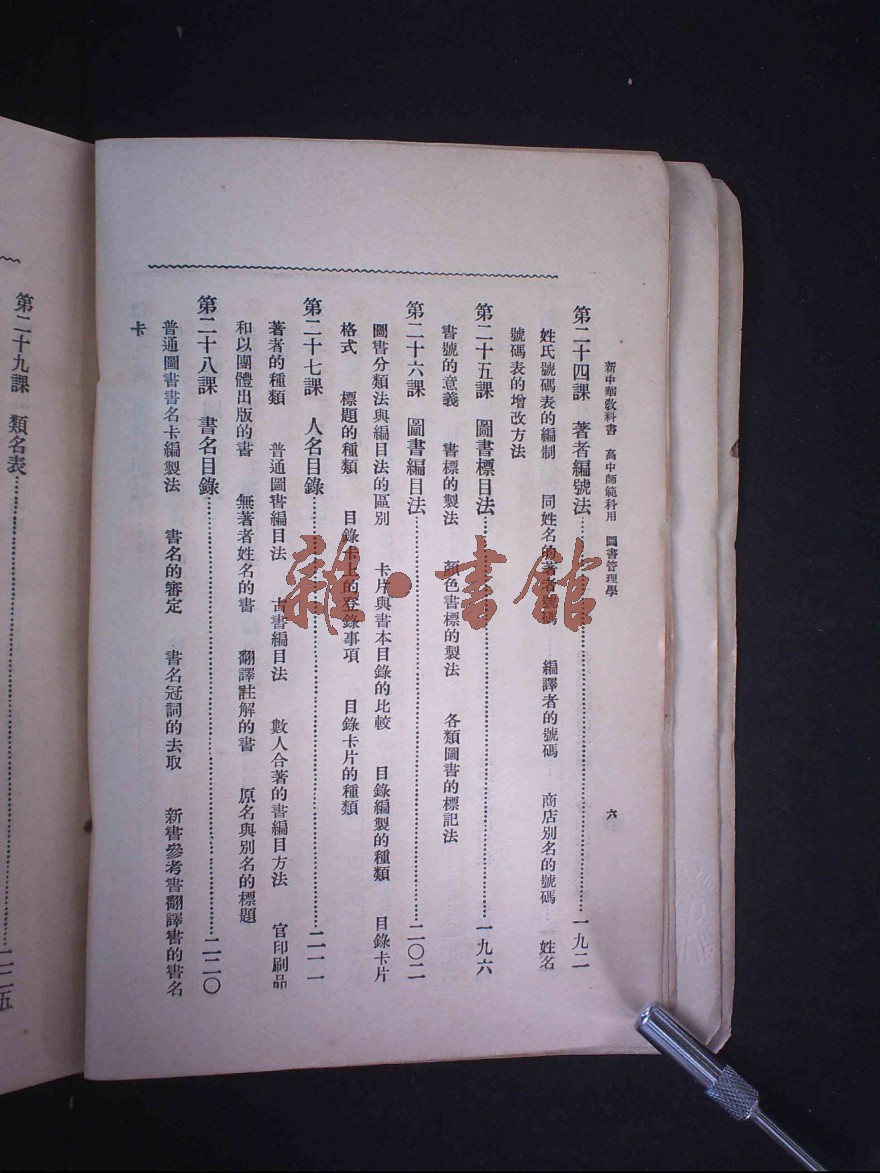 新中華敎科書　高中師範科用　圖書管理學　六
第二十四課　著者編號法………一九二
姓氏號碼表的編制　同姓名的著者號碼　編譯者的號碼　商店別名的號碼　姓名
號碼表的增改方法
第二十五課　圖書標目法………一九六
書號的意義　書標的製法　顏色書標的製法　各類圖書的標記法
第二十六課　圖書編目法………二〇二
圖書分類法與編目法的區別　卡片與書本目錄的比較　目錄編製的種類　目錄卡片
格式　標題的種類　目錄卡上的登錄事項　目錄卡片的種類
第二十七課　人名目錄………二一一
著者的種類　普通圖書編目法　古書編目法　數人合著的書編目方法　官印刷品
和以團體出版的書　無著者姓名的書　翻譯註解的書　原名與別名的標題
第二十八課　書名目錄………二二〇
普通圖書書名卡編製法　書名的審定　書名冠詞的去取　新書參考書翻譯書的書名
卡
第二十九課　類名表………二二五
雜·書館